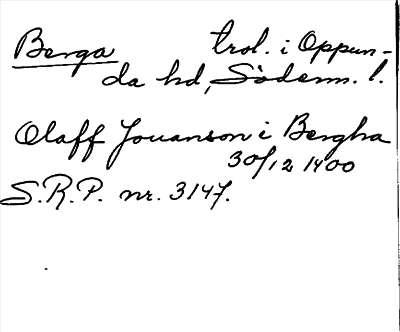 Berga trol. i Oppun-
da hd, Söderm. l.
Olaff Jouanson i Bergha
30/12 1400
S.R.P. nr. 3147.